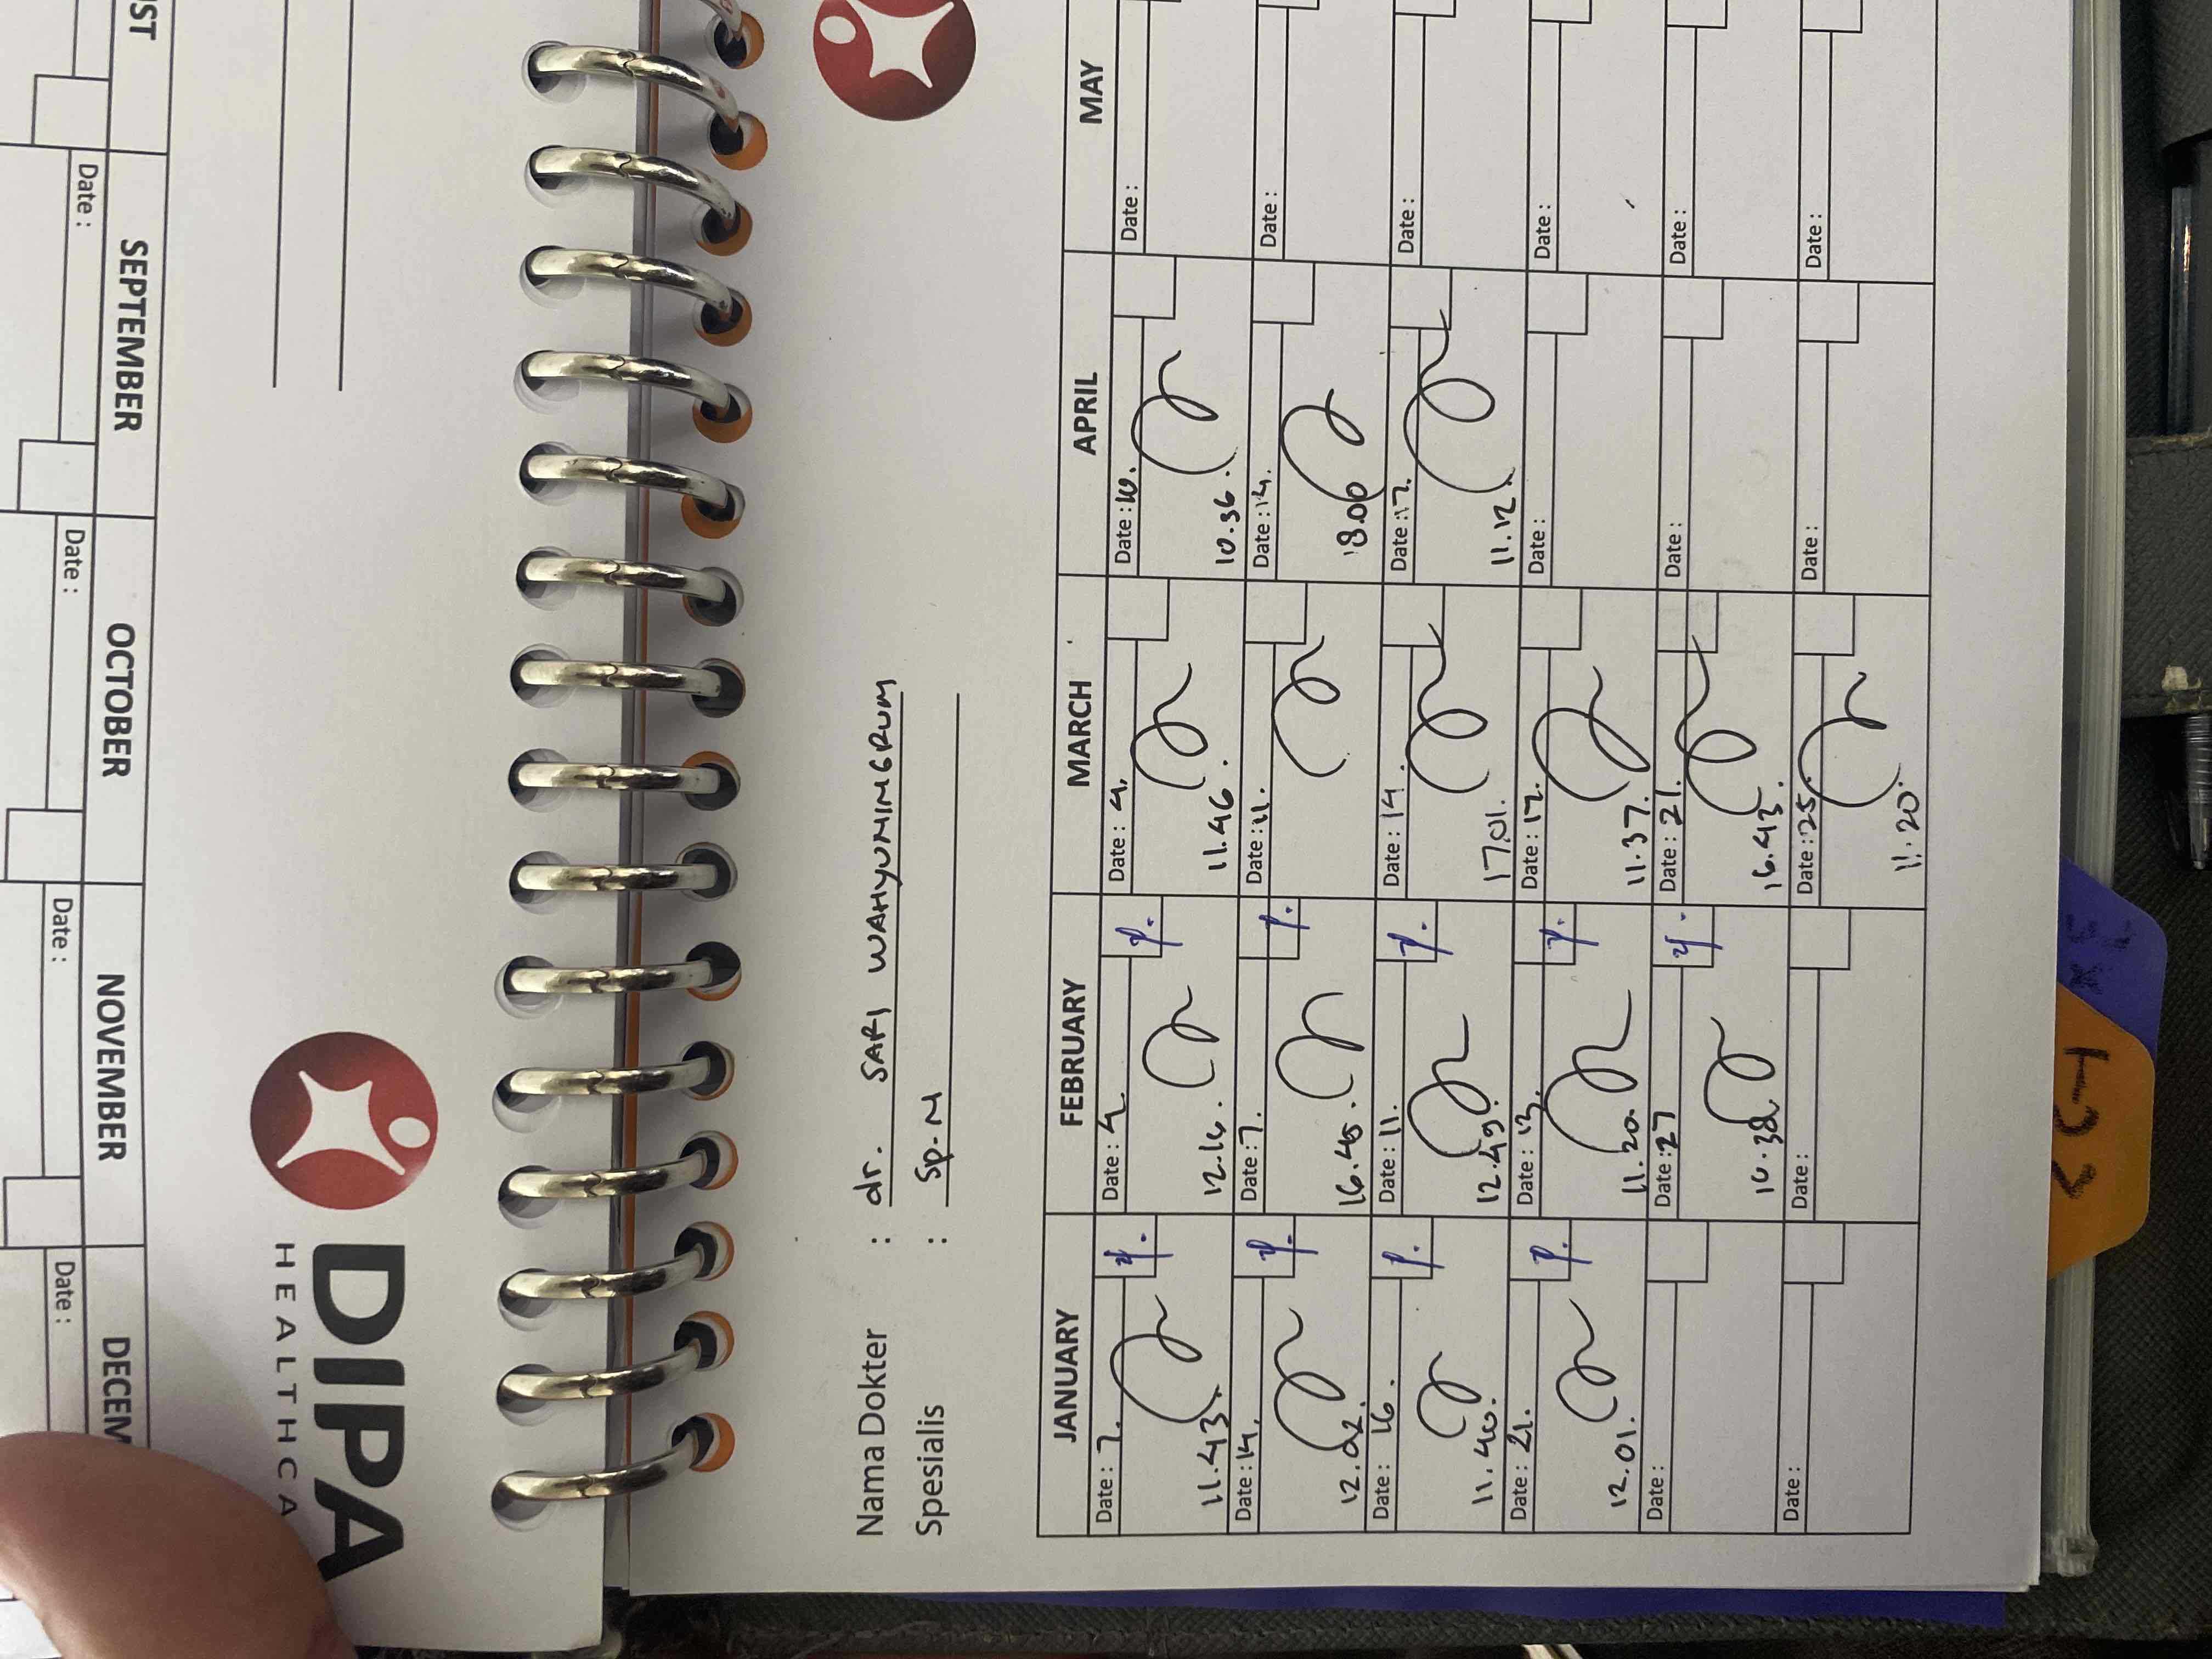 ST
SEPTEMBER
OCTOBER
NOVEMBER
DECEM
Date :
Date :
Date :
Date :
DIPA
HEALTHCA
Nama Dokter : dr. SARI WAHYUNINGRUM
Spesialis : Sp. N
JANUARY FEBRUARY MARCH APRIL MAY
Date : 7. Date : 4. Date : 4. Date : 10. Date :
11.43. 12.16. 11.46. 10.36.
Date : 14. Date : 7. Date : 11. Date : 14. Date :
12.02. 16.45. 18.00
Date : 16. Date : 11. Date : 14. Date : 17. Date :
11.40. 12.49. 17.01. 11.12.
Date : 21. Date : 13. Date : 17. Date : Date :
12.01. 11.20. 11.37.
Date : Date : 27 Date : 21. Date : Date :
10.38 16.43.
Date : Date : Date : 25. Date : Date :
11.20.